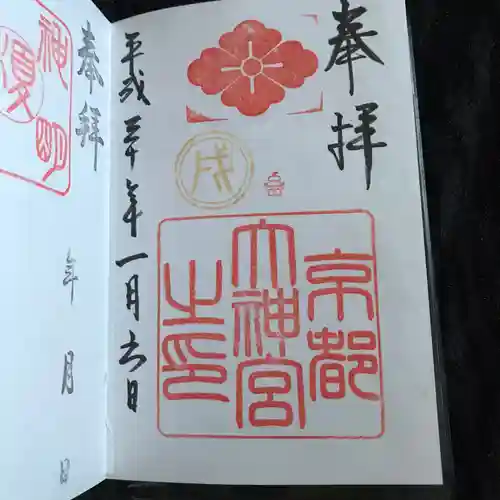 奉拝
戌
京都
大神宮
之印
平成三十年一月六日
奉拝
年 月 日
神明